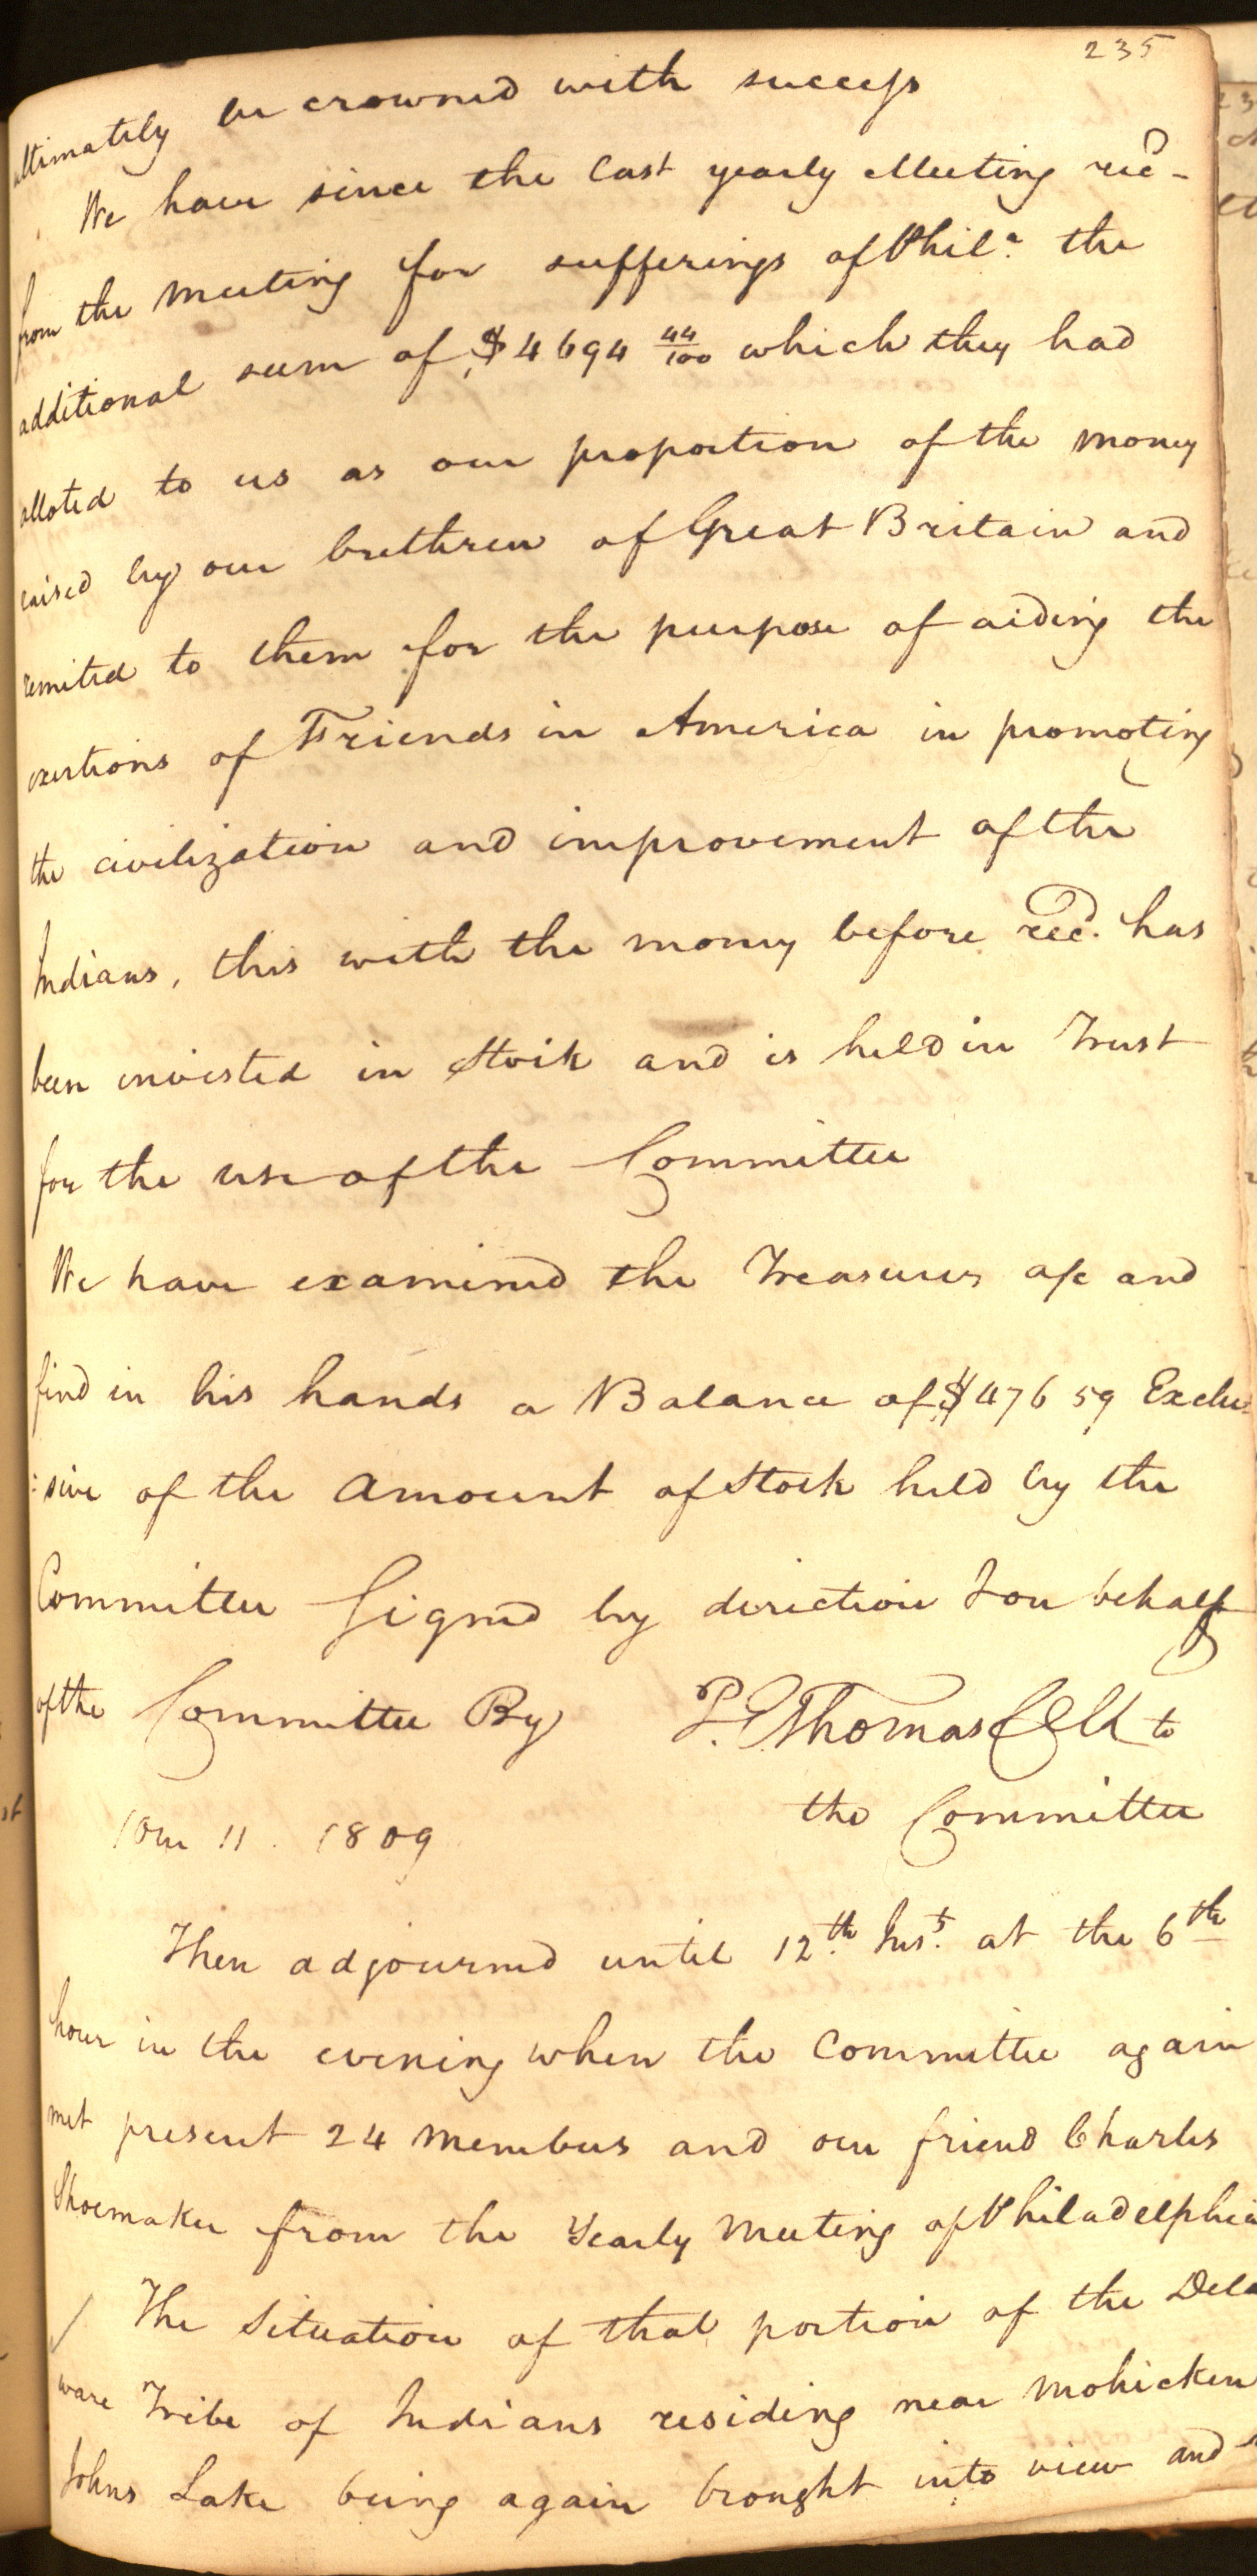 235
ultimately be crowned with success
We have since the last yearly Meeting recd
from the meeting for sufferings of Phila. the
additional sum of $4694 44/100 which they had
alloted to us as our proportion of the money
raised by our brethren of Great Britain and
remited to them for the purpose of aiding the
exertions of Friends in America in promoting
the civilization and improvement of the
Indians, this with the money before recd. has
been invested in Stock and is held in Trust
for the use of the Committee
We have examined the Treasurers a/c and
find in his hands a Balance of $476 59 Exclu=
=sive of the amount of Stock held by the
Committee Signed by direction & on behalf
of the Committee By P. E. Thomas Clk to
the Committee
10m 11. 1809
Then adjourned until 12th. Inst. at the 6th
hour in the evening when the Committee again
met present 24 members and our friend Charles
Shoemaker from the Yearly Meeting of Philadelphia
/ The Situation of that portion of the Dela
ware Tribe of Indians residing near Mohicken
Johns Lake being again brought into view and